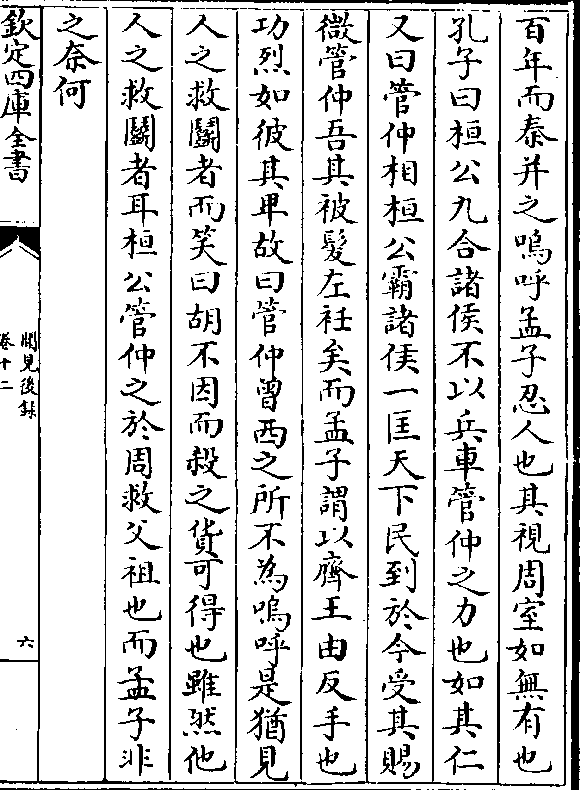 百年而秦并之嗚呼孟子忍人也其視周室如無有也
孔子曰桓公九合諸侯不以兵車管仲之力也如其仁
又曰管仲相桓公霸諸侯一匡天下民到於今受其賜
微管仲吾其被髮左衽矣而孟子謂以齊王由反手也
功烈如彼其卑故曰管仲曾西之所不為嗚呼是猶見
人之救鬬者而笑曰胡不因而殺之貨可得也雖然他
人之救鬬者耳桓公管仲之於周救父祖也而孟子非
之奈何
欽定四庫全書
聞見後録
卷十二
六